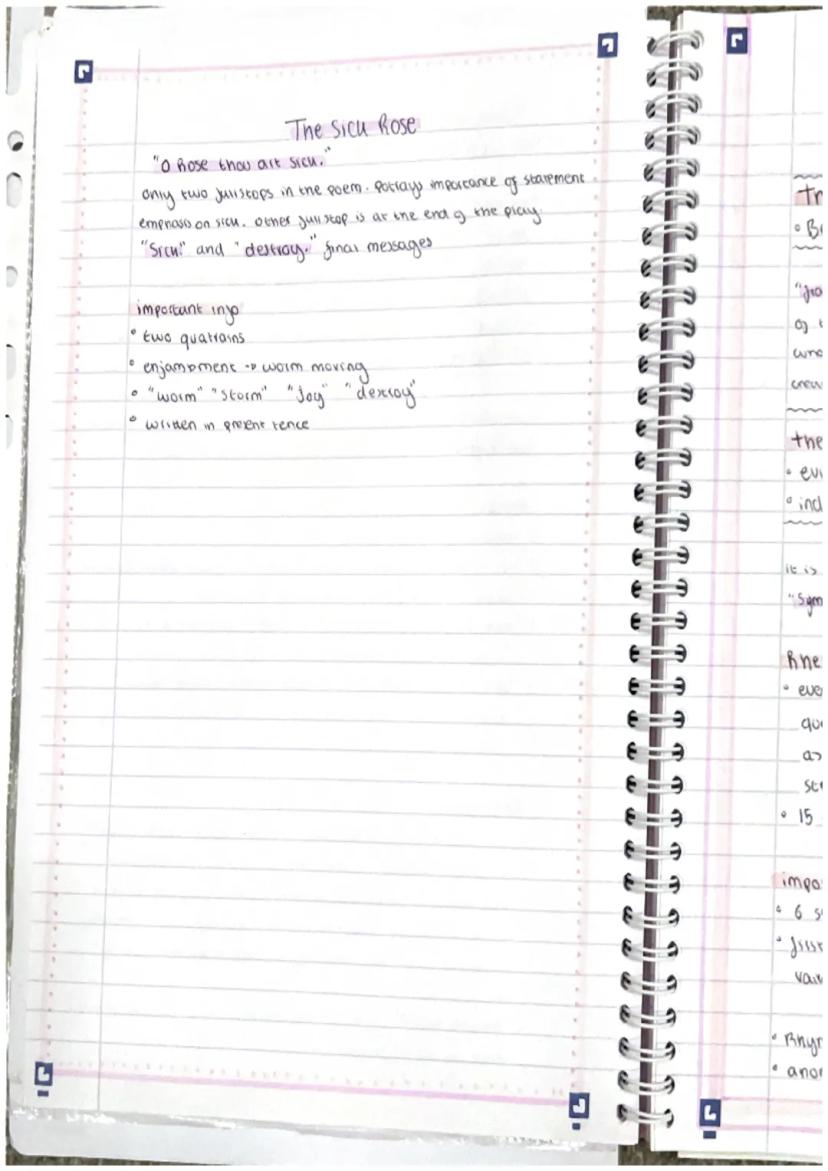 The Sick Rose
"O Rose thou art sick."
only two fullstops in the poem. potrays importance of statement
emphasis on sick. other full stop is at the end of the play.
"Sick." and "destroy." final messages
important info
• two quatrains
• enjambment → worm moving
• "worm" "storm" "Joy" "destroy"
• written in present tence
Tr
• Br
of
the
• evi
• incl
it is
"Sym
Rhe
• eve
que
as
str
• 15
impo
• 6 s
• Rhyr
• anor